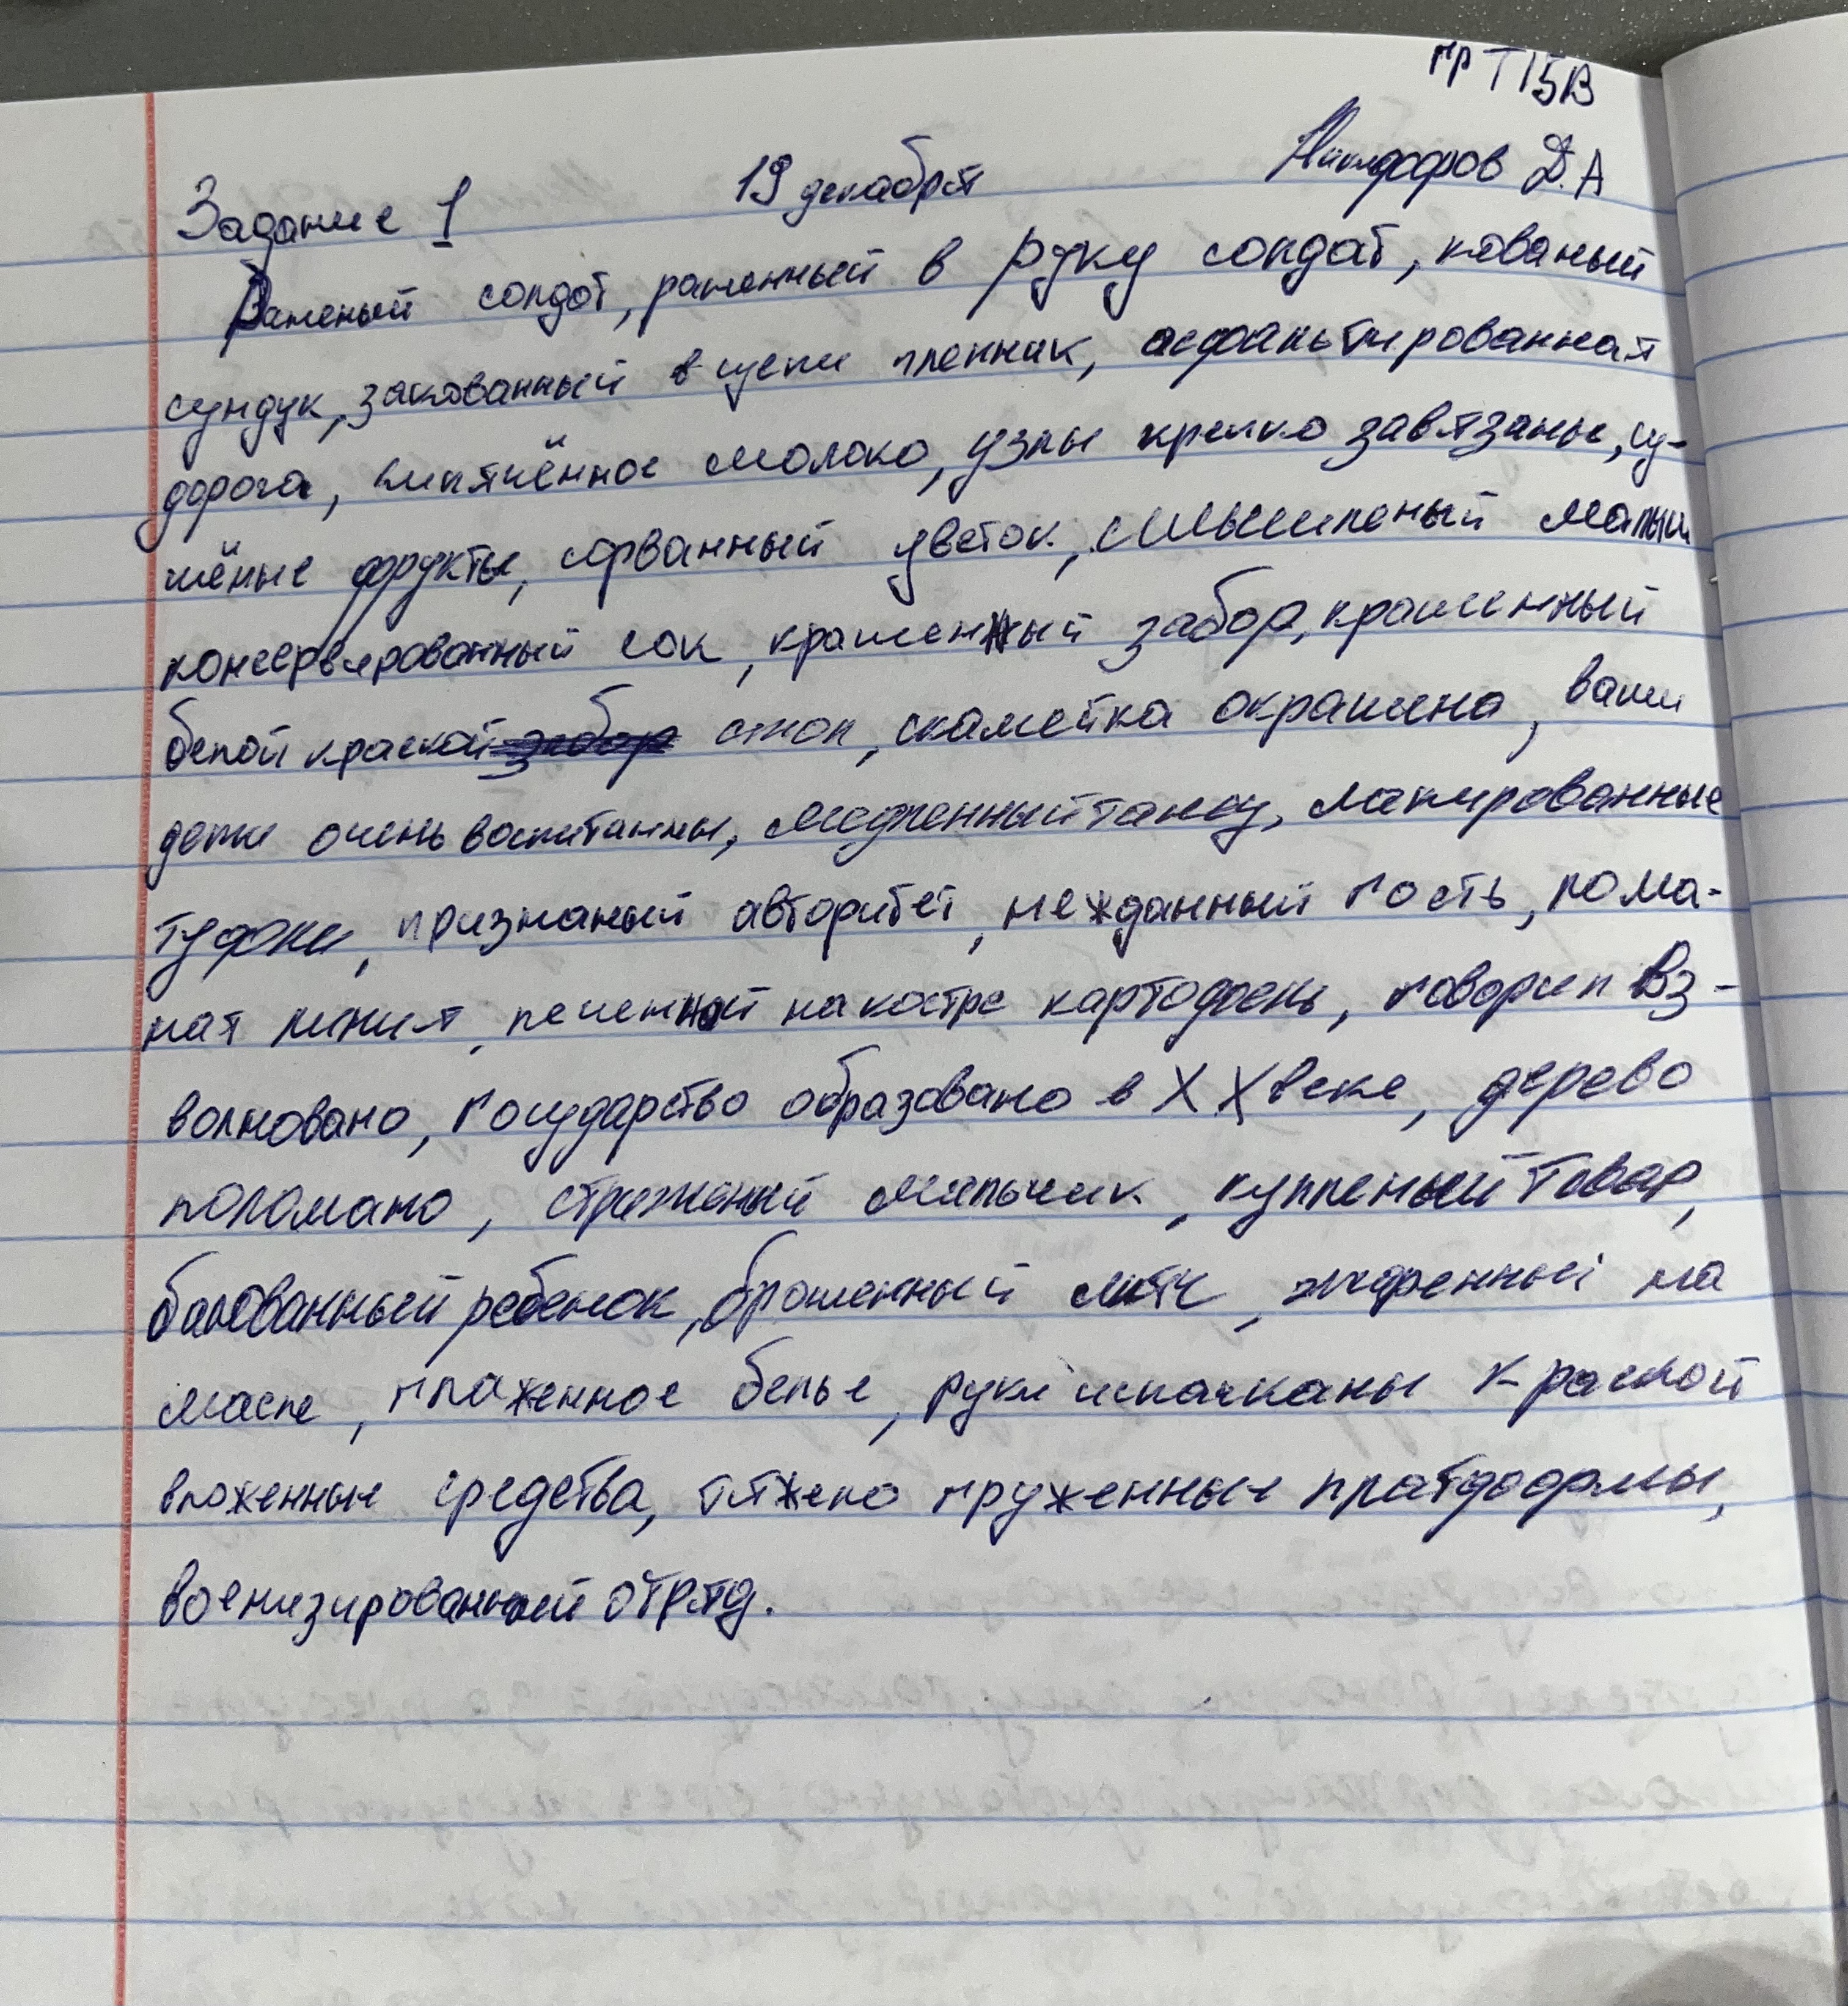 гр Т15В
Задание 1 19 декабря Д.А
Раненый солдат, раненный в руку солдат, кованый
сундук, закованный в цепи пленник, асфальтированная
дорога, кипячённое молоко, узлы крепко завязаны, су-
шёные фрукты, сорванный цветок, смышленый малыш
консервированный сок, крашенный забор, крашенный
белой краской стол, скамейка окрашена, ваши
дети очень воспитанны, медленный танец, лакированные
туфли, признаный авторитет, нежданный гость, лома-
ная линия, печенный на костре картофель, говорил вз-
волновано, государство образовано в XX веке, дерево
поломано, стриженый мальчик, купленый товар,
балованный ребенок, брошенный мяч, жаренный на
масле, глаженное белье, руки испачканы краской
вложенные средства, тяжело груженные платформы,
военизированный отряд.